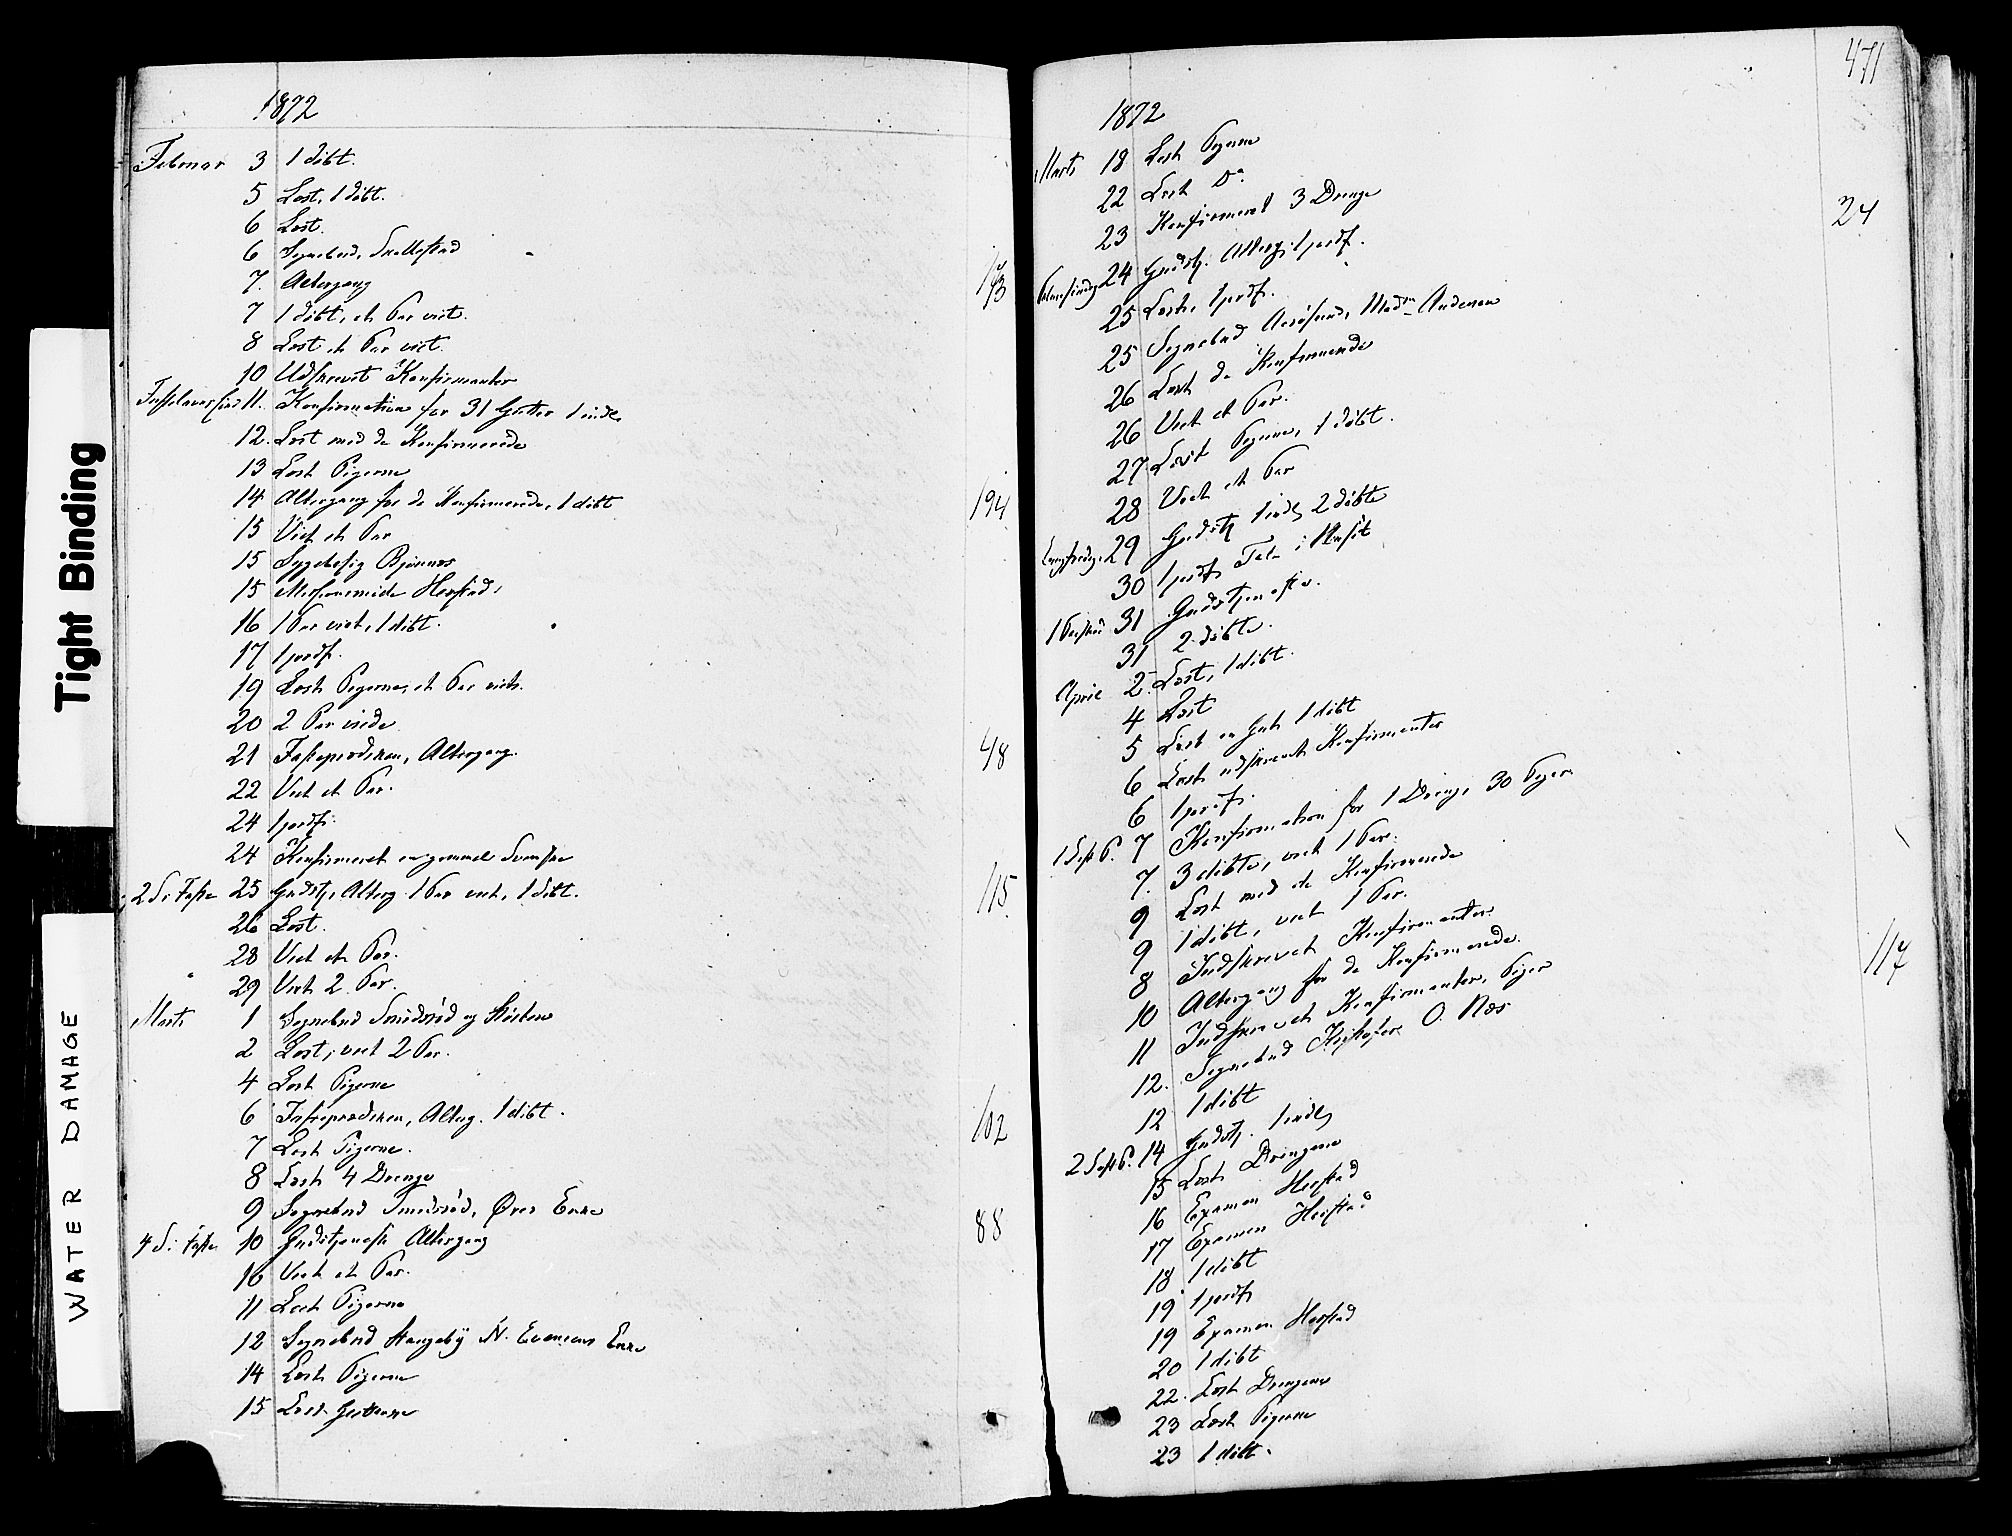 Tight Binding
WATER DAMAGE
1872
Februar 3 1 døbt.
5 Læst, 1 døbt.
6 Læst.
6 Sognebud,
7. Altergang
7 1 døbt, et Par viet.
8 Læst et Par viet.
10 Udskrevet Konfirmanter
11. Konfirmation for 31 Gutter 1 indl.
12. Læst med de Konfirmerede
13 Læst Pigerne
14 Altergang for de Konfirmerede, 1 døbt 194
15 Viet et Par
15 Bjønnes
15 Herstad,
16 1 Par viet, 1 døbt.
17 1 jordf.
19 Læst Pigerne, et Par viet.
20 2 Par viede
21 Fasteprædiken, Altergang. 48
22 Viet et Par.
24 1 jordf.
24 Konfirmeret en gammel Svenske
2 S. i Faste 25 Gudstj, Alterg. 1 Par viet, 1 døbt. 115
26 Læst.
28 Viet et Par.
29 Viet 2 Par.
Marts 1 Sognebud Smidsrød og
2 Læst, viet 2 Par.
4 Læst Pigerne
6 Fasteprædiken, Alterg. 1 døbt. 102
7 Læst Pigerne.
8 Læst 4 Drenge
9 Sognebud Smidsrød, Enke
4 S. i Faste 10 Gudstjeneste Altergang 88
10 Viet et Par.
11 Læst Pigerne
12 Sognebud N. Evensens Enke
14 Læst Pigerne
15 Læst Gutterne
471
1872
Marts 18 Læst Pigerne
22 Læst Do.
23 Konfirmeret 3 Drenge
Palmesøndag 24 Gudstj. Alterg, 1 jordf. 24
25 Læst, 1 jordf.
25 Sognebud Aarøsund, Madm Andersen
26 Læst de Konfirmerede
26 Viet et Par.
27 Læst Pigerne, 1 døbt.
28 Viet et Par
Langfredag 29 Gudstj 1 indl, 2 døbte
30 1 jordf, Tale i Huset
1 Paaske 31 Gudstjeneste.
31 2 døbte.
April 2. Læst, 1 døbt.
4 Læst
5 Læst en Gut 1 døbt
6 Læst, udskrevet Konfirmanter
6 1 jordf.
1 S. eft P. 7 Konfirmation for 1 Dreng, 30 Piger
7. 3 døbte, viet 1 Par.
9 Læst med de Konfirmerede
9 1 døbt, viet 1 Par.
8 Indskrevet Konfirmanter.
10 Altergang for de Konfirmerede. 117
11 Indskrevet Konfirmanter, Piger
12. Sognebud O. Næs
12 1 døbt
2 S. eft P. 14 Gudstj. 1 indl,
15 Læst Drengene
16 Examen Herstad
17 Examen Herstad
18 1 døbt
19 1 jordf
19 Examen Herstad
20 1 døbt
22. Læst Drengene
23 Læst Pigerne
23 1 døbt.